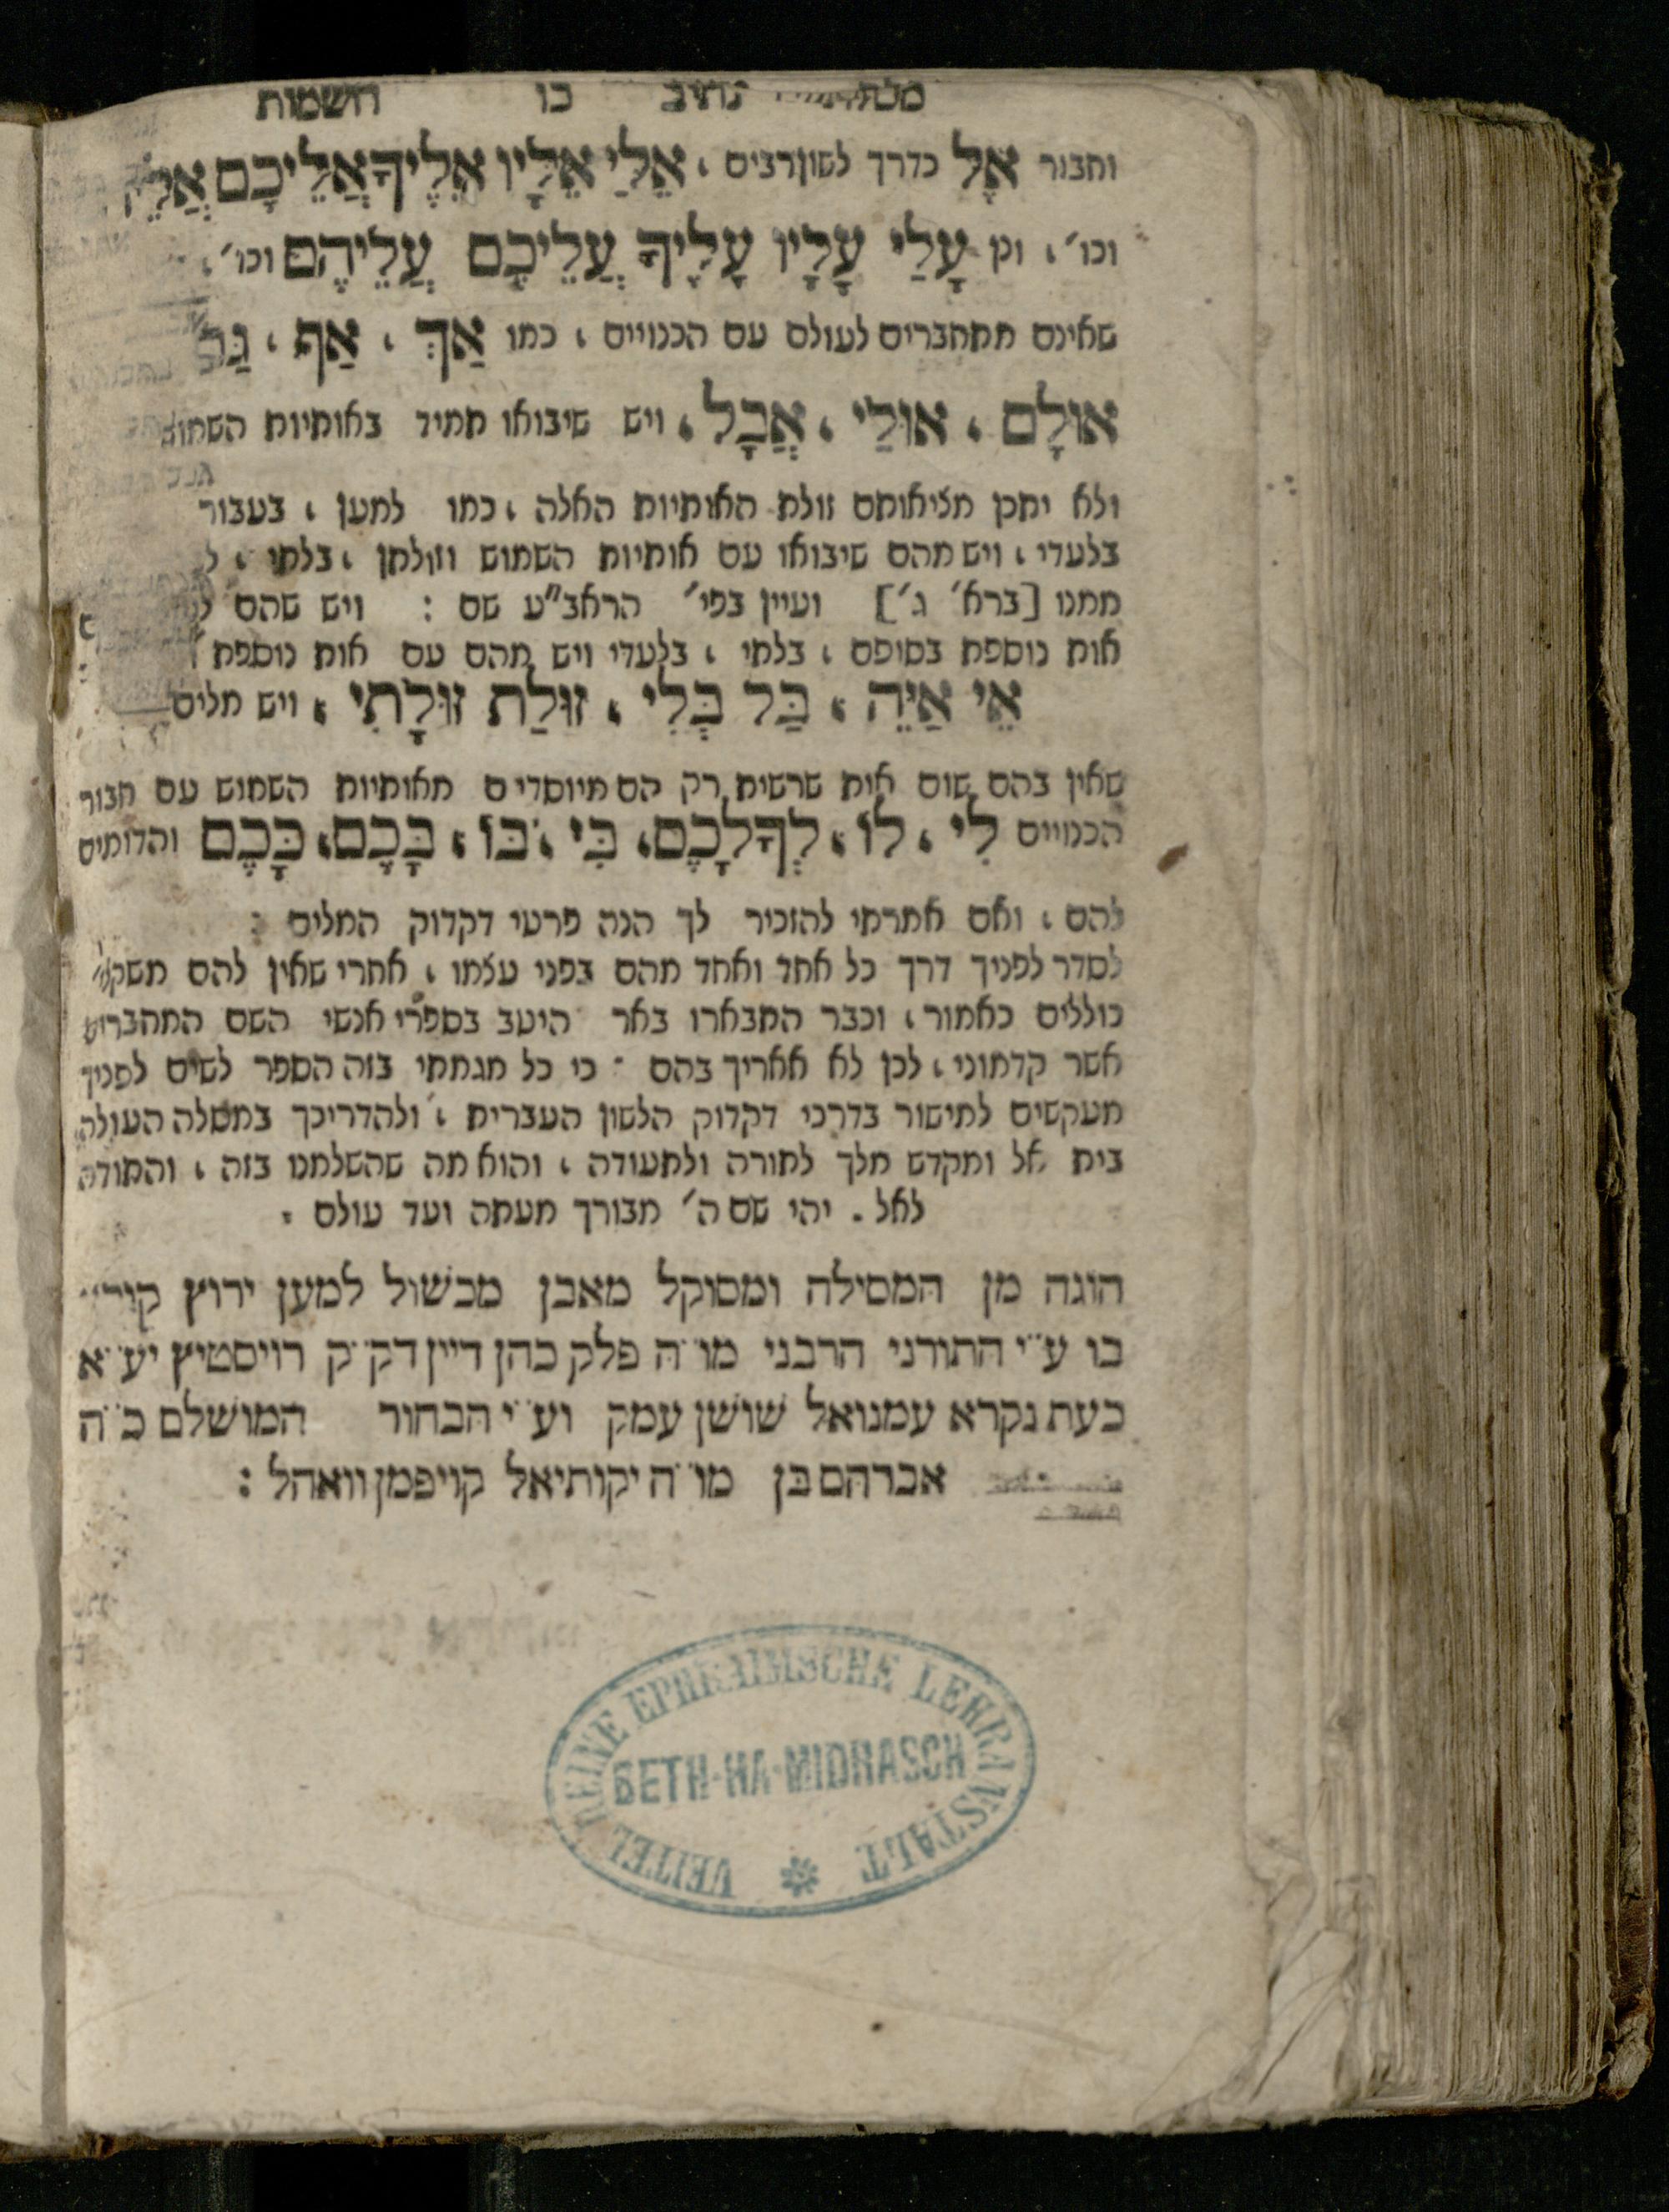 נתיב כו השמות
וחבור אֶל כדרך לשון רבים, אֵלַי אֵלָיו אֵלֶיךָ אֲלֵיכֶם
וכו׳, וכן עָלַי עָלָיו עָלֶיךָ עֲלֵיכֶם עֲלֵיהֶם וכו׳,
שאינם מתחברים לעולם עם הכנויים, כמו אַךְ, אַף, גַּם
אוּלָם, אוּלַי, אֲבָל, ויש שיבואו תמיד באותיות השמוש
ולא יתכן מציאותם זולת האותיות האלה, כמו למען, בעבור
בלעדי, ויש מהם שיבואו עם אותיות השמוש וזולתן, בלתי,
ממנו [ברא׳ ג׳] ועיין בפי׳ הראב״ע שם : ויש שהם
אות נוספת בסופם, בלתי, בלעדי ויש מהם עם אות נוספת
אֵי אַיֵּה, בַּל בְּלִי, זוּלַת זוּלָתִי, ויש מלים
שאין בהם שום אות שרשית רק הם מיוסדים מאותיות השמוש עם חבור
הכנויים לִי, לוֹ, לְךָ לָכֶם, בִּי, בּוֹ, בָּכֶם, בָּכֶם והדומים
להם, ואם אמרתי להזכיר לך הנה פרטי דקדוק המלים :
לסדר לפניך דרך כל אחד ואחד מהם בפני עצמו, אחרי שאין להם
כוללים כאמור, וכבר התבארו באר היטב בספרי אנשי השם המחברים
אשר קדמוני, לכן לא אאריך בהם · כי כל מגמתי בזה הספר לשים לפניך
מעקשים למישור בדרכי דקדוק הלשון העברית, ולהדריכך במסלה העולה
בית אל ומקדש מלך לתורה ולתעודה, והוא מה שהשלמנו בזה, והתודה
לאל . יהי שם ה׳ מבורך מעתה ועד עולם .
הוגה מן המסילה ומסוקל מאבן מכשול למען ירוץ
בו ע״י התורני הרבני מו״ה פלק כהן דיין דק״ק רויסטיץ יע״א
כעת נקרא עמנואל שושן עמק וע״י הבחור המושלם כ״ה
אברהם בן מו״ה יקותיאל קויפמן וואהל :
VEITEL HEINE EPHRAIMSCHE LEHRANSTALT
BETH-HA-MIDRASCH